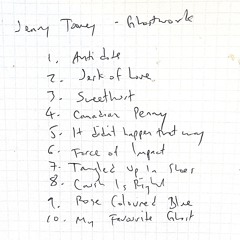 Jenny Toomey - Ghostwork
1. Antidote
2. Jerk of Love
3. Sweethurt
4. Canadian Penny
5. It didn't happen that way
6. Force of Impact
7. Tangled Up In Shoes
8. Crush Is Right
9. Rose Coloured Blue
10. My Favourite Ghost